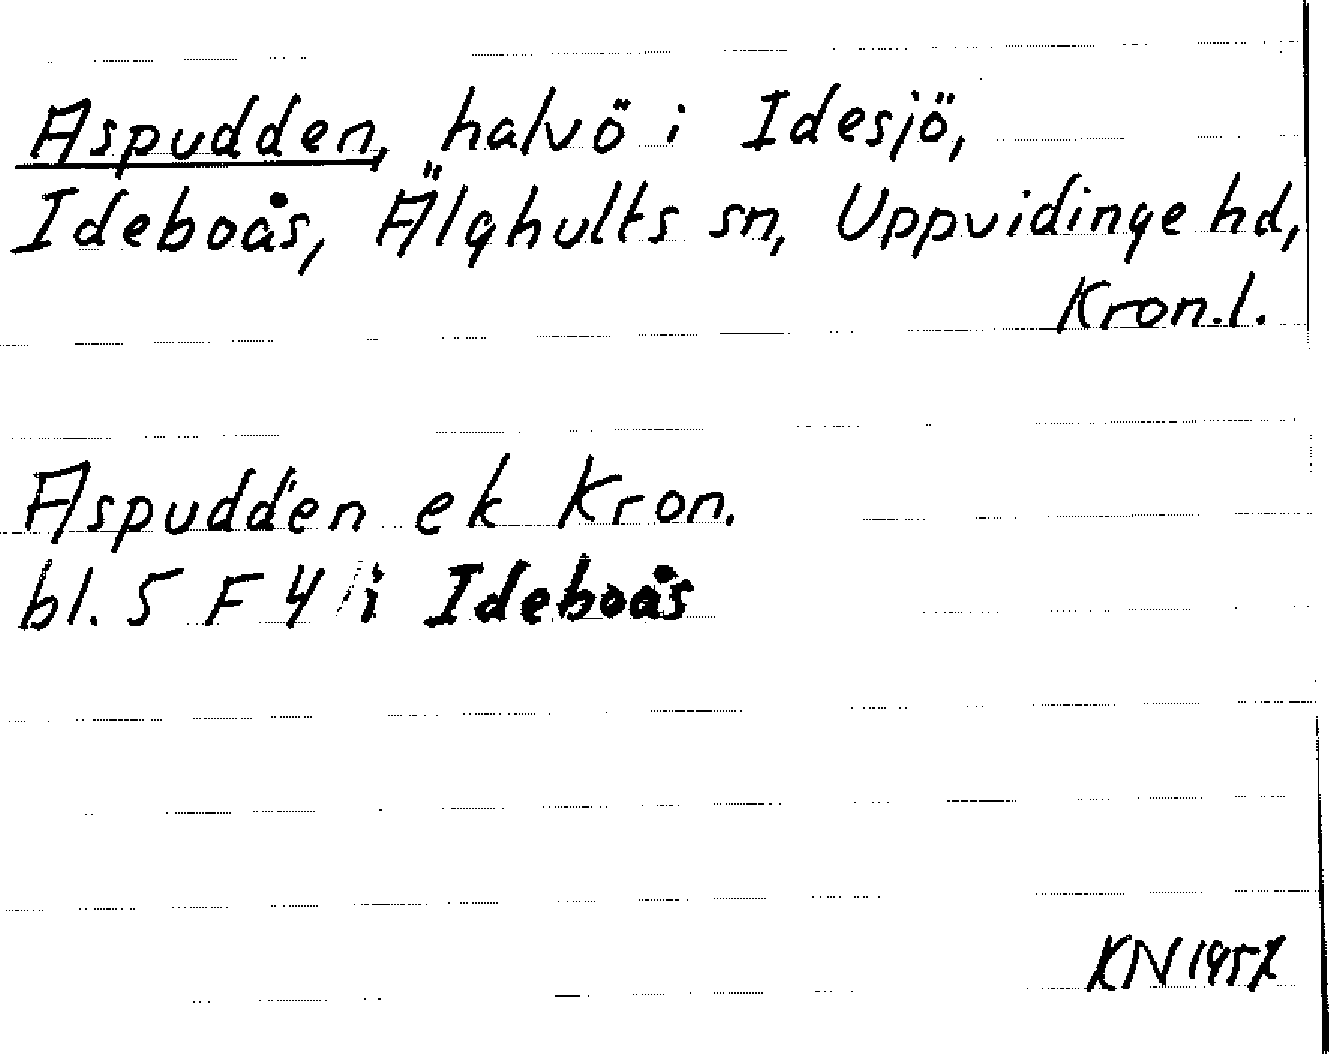 Aspudden, halvö i Idesjö,
Ideboås, Älghults sn, Uppvidinge hd,
Kron.l.
Aspudden ek Kron.
bl. 5 F 4 i Ideboås
KN 1957